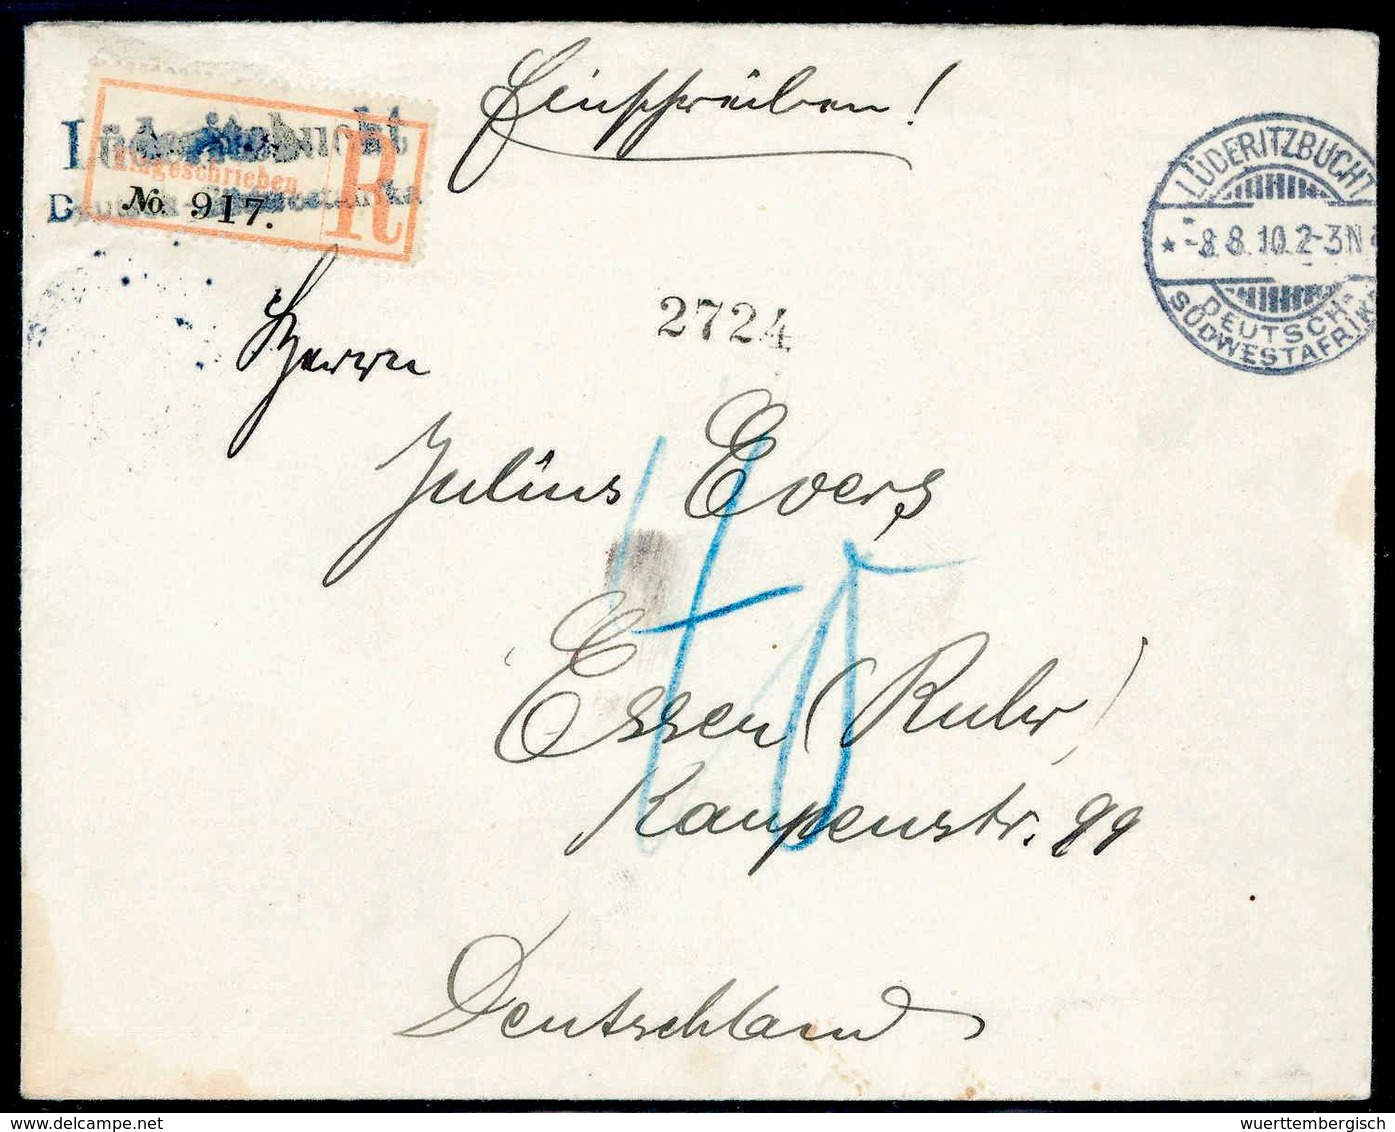 Einschreiben!
Lüderitzbucht
Eingeschrieben
No. 917.
R
Deutsch-Südwestafrika
LÜDERITZBUCHT
-8.8.10.2-3N
DEUTSCH-
SÜDWESTAFRIKA
2724
Herrn
Julius Evers
Essen (Ruhr)
Kaupenstr. 99
Deutschland
wuerttembergisch